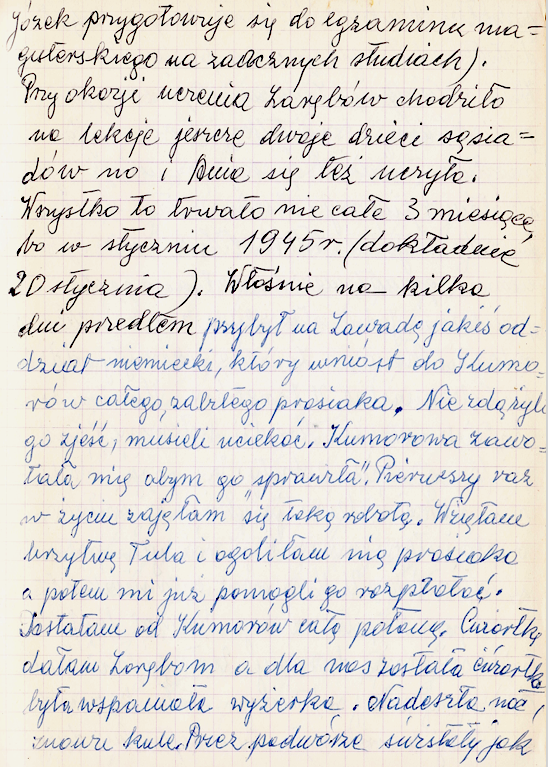 Józek przygotowuje się do egzaminu ma=
gisterskiego na zaocznych studiach).
Przy okazji uczenia Zarębów chodziło
na lekcje jeszcze dwoje dzieci sąsia=
dów no i Ania się też uczyła.
Wszystko to trwało nie całe 3 miesiące,
bo w styczniu 1945r. (dokładnie
20 stycznia). Właśnie na kilka
dni przedtem przybył na Zawadę jakiś od=
dział niemiecki, który wniósł do Kumo=
rów całego, zabitego prosiaka. Nie zdążyli
go zjeść, musieli uciekać. Kumorowa zawo=
łała mię abym go „sprawiła". Pierwszy raz
w życiu zajęłam się taką robotą. Wzięłam
brzytwę Tula i ogoliłam nią prosiaka
a potem mi już pomogli go rozpłatać.
Dostałam od Kumorów całą połowę. Ćwiartkę
dałam Zarębom a dla nas została ćwiartka
była wspaniała wyżerka. Nadeszła noc,
znowu kule. Przez podwórze świstały jak